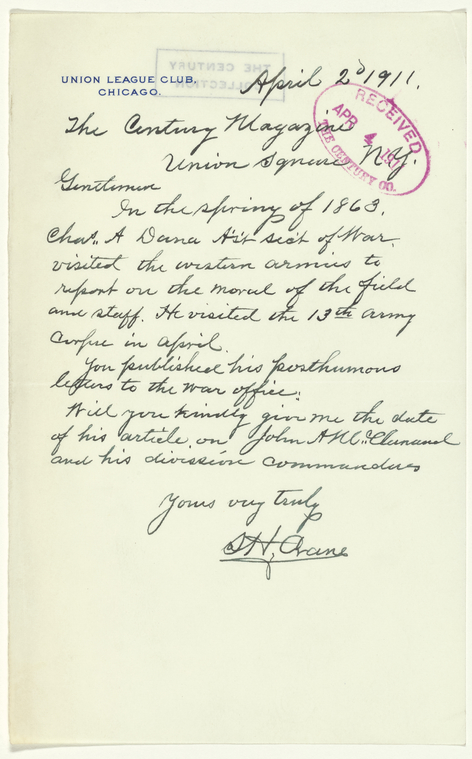 THE CENTURY
COLLECTION
UNION LEAGUE CLUB,
CHICAGO.
April 2d 1911.
RECEIVED
APR 4 1911
THE CENTURY CO.
The Century Magazine
Union Square N.Y.
Gentlemen
In the spring of 1863.
Chas. A Dana As't sec't of War.
visited the western armies to
report on the moral of the field
and staff. He visited the 13th army
Corps in april.
You published his posthumous
letters to the war office.
Will you kindly give me the date
of his article on John A McClernand
and his division commanders
Yours very truly
S H, Crane